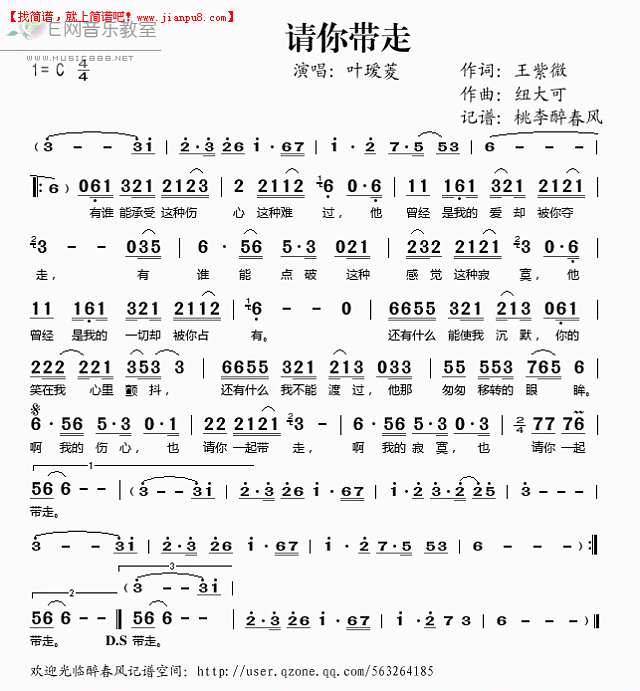 【找简谱，就上简谱吧！www.jianpu8.com】
E网音乐教室
www.MUSIC888.NET
请你带走
1= C 4/4
演唱：叶瑷菱
作词：王紫微
作曲：纽大可
记谱：桃李醉春风
(3 - - 3i | 2·3 26 i·67 | i·2 7·5 53 | 6 - - - |
‖: 6) 061 321 2123 | 2 2112 6 0·6 | 11 161 321 2121 |
有谁 能承受 这种伤 心 这种难 过， 他 曾经 是我的 爱 却 被你夺
3 - - 035 | 6·56 5·3 021 | 232 2121 3 0·6 |
走， 有 谁 能 点 破 这种 感觉 这种寂 寞， 他
11 161 321 2112 | 6 - - 0 | 6655 321 213 061 |
曾经 是我的 一切却 被你占 有。 还有什么 能使我 沉默， 你的
222 221 353 3 | 6655 321 213 033 | 55 553 765 6 |
笑在我 心里 颤 抖， 还有什么 我不能 渡过， 他那 匆匆 移转的 眼 眸。
6·56 5·3 0·1 | 22 2121 3 - | 6·56 5·3 0·6 | 2/4 77 76 |
啊 我的 伤心， 也 请你 一起带 走， 啊 我的 寂寞， 也 请你 一起
1
56 6 - - | (3 - - 3i | 2·3 26 i·67 | i·2 3·2 25 | 3 - - - |
带走。
3 - - 3i | 2·3 26 i·67 | i·2 7·5 53 | 6 - - - ) :‖
2
3
(3 - - 3i |
56 6 - - ‖ 56 6 - - | 2·3 26 i·67 | i·2 73 | 6 - - - ‖
带走。 D.S 带走。
欢迎光临醉春风记谱空间：http://user.qzone.qq.com/563264185